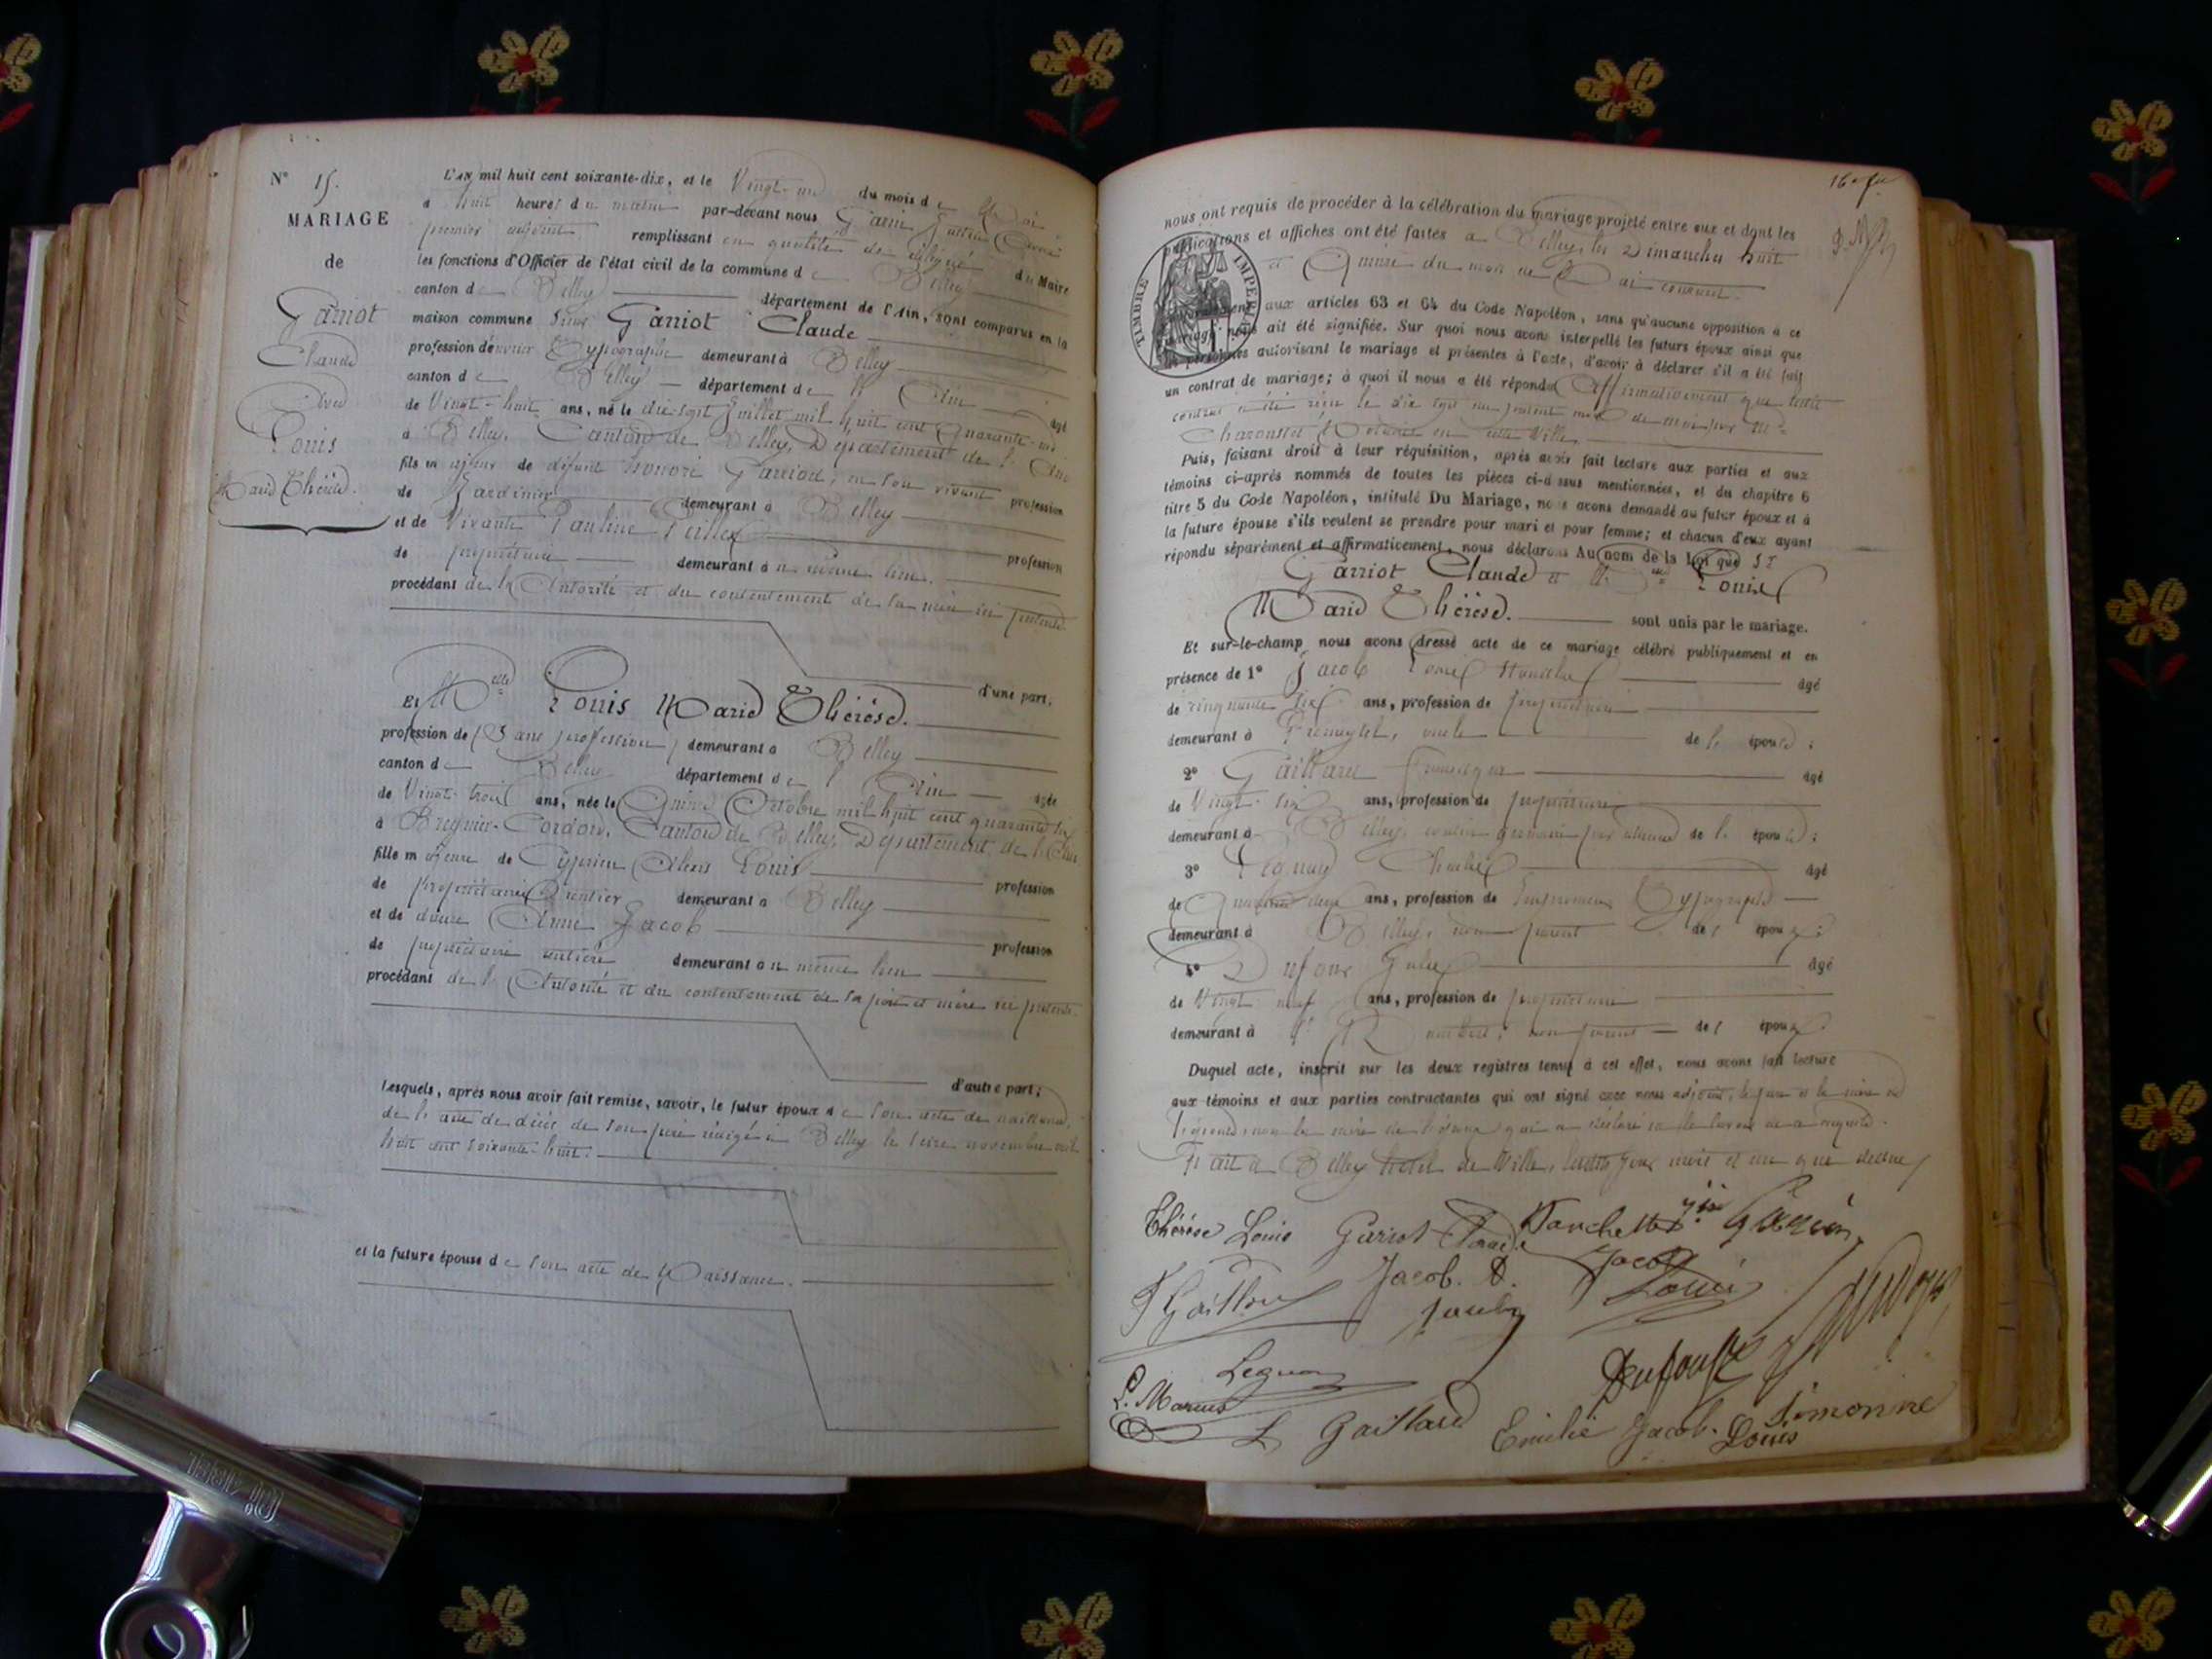 N° 15.
MARIAGE
de
Garriot
Claude
avec
Louis
Marie Thérèse.
L'an mil huit cent soixante-dix, et le Vingt-un du mois de Mai
à huit heures du matin par-devant nous Garin
premier adjoint remplissant en qualité de délégué du Maire
les fonctions d'Officier de l'état civil de la commune de Belley
canton de Belley département de l'Ain, sont comparus en la
maison commune Sieur Garriot Claude
profession d'ouvrier Typographe demeurant à Belley
canton de Belley département de l'Ain âgé
de Vingt-huit ans, né le dix-sept Juillet mil huit cent quarante-un
à Belley, Canton de Belley, Département de l'Ain
fils majeur de défunt honoré Garriot, en son vivant profession
de Jardinier demeurant à Belley
et de Vivante Pauline
de propriétaire demeurant au même lieu. profession
procédant de l'Autorité et du consentement de sa mère ici présente
d'une part.
Et Melle Louis Marie Thérèse.
profession de (Sans profession) demeurant à Belley
canton de Belley département de l'Ain âgée
de Vingt-trois ans, née le Quinze Octobre mil huit cent quarante six
à Bregnier-Cordon, Canton de Belley, Département de l'Ain
fille majeure de Cyprien Alexis Louis
profession
de propriétaire Rentier demeurant à Belley
et de dame Anne Jacob
profession
de propriétaire rentière demeurant au même lieu
procédant de l'Autorité et du consentement de ses père et mère ici présents.
d'autre part;
Lesquels, après nous avoir fait remise, savoir, le futur époux de son acte de naissance,
de l'acte de décès de son père rédigé à Belley le seize novembre mil
huit cent soixante-huit.
et la future épouse de son acte de Naissance.
16e fet
nous ont requis de procéder à la célébration du mariage projeté entre eux et dont les
publications et affiches ont été faites à Belley, les Dimanches huit
et Quinze du mois de Mai courant.
aux articles 63 et 64 du Code Napoléon, sans qu'aucune opposition à ce
mariage nous ait été signifiée. Sur quoi nous avons interpellé les futurs époux ainsi que
les personnes autorisant le mariage et présentes à l'acte, d'avoir à déclarer s'il a été fait
un contrat de mariage; à quoi il nous a été répondu Affirmativement que ledit
contrat a été reçu le dix sept du présent mois de mai par Me
Notaire en cette Ville
TIMBRE IMPERIAL
Puis, faisant droit à leur réquisition, après avoir fait lecture aux parties et aux
témoins ci-après nommés de toutes les pièces ci-dessus mentionnées, et du chapitre 6
titre 5 du Code Napoléon, intitulé Du Mariage, nous avons demandé au futur époux et à
la future épouse s'ils veulent se prendre pour mari et pour femme; et chacun d'eux ayant
répondu séparément et affirmativement, nous déclarons Au nom de la Loi que Sr
Garriot Claude et Melle Louis
Marie Thérèse. sont unis par le mariage.
Et sur-le-champ nous avons dressé acte de ce mariage célébré publiquement et en
présence de 1° Jacob Louis Stanislas âgé
de cinquante six ans, profession de propriétaire
demeurant à oncle de l'épouse;
2° Gaillard François âgé
de Vingt-six ans, profession de propriétaire
demeurant à Belley, cousin germain par alliance de l'épouse;
3° Leguay Charles âgé
de Quarante deux ans, profession de Imprimeur Typographe
demeurant à Belley, non parent de l'époux;
4° Dufour Jules âgé
de Vingt neuf ans, profession de propriétaire
demeurant à non parent de l'époux.
Duquel acte, inscrit sur les deux registres tenus à cet effet, nous avons fait lecture
aux témoins et aux parties contractantes qui ont signé avec nous adjoint, le père et la mère de
l'épouse, non la mère de l'époux qui a déclaré ne le savoir de ce requise.
Fait à Belley hotel de Ville, lesdits jour mois et an que dessus
Thérèse Louis Garriot Claude
F Gaillard Jacob. Jacob Louis
Leguay Dufour
L. Marius L Gaillard Emilie Jacob. Simonne
Louis